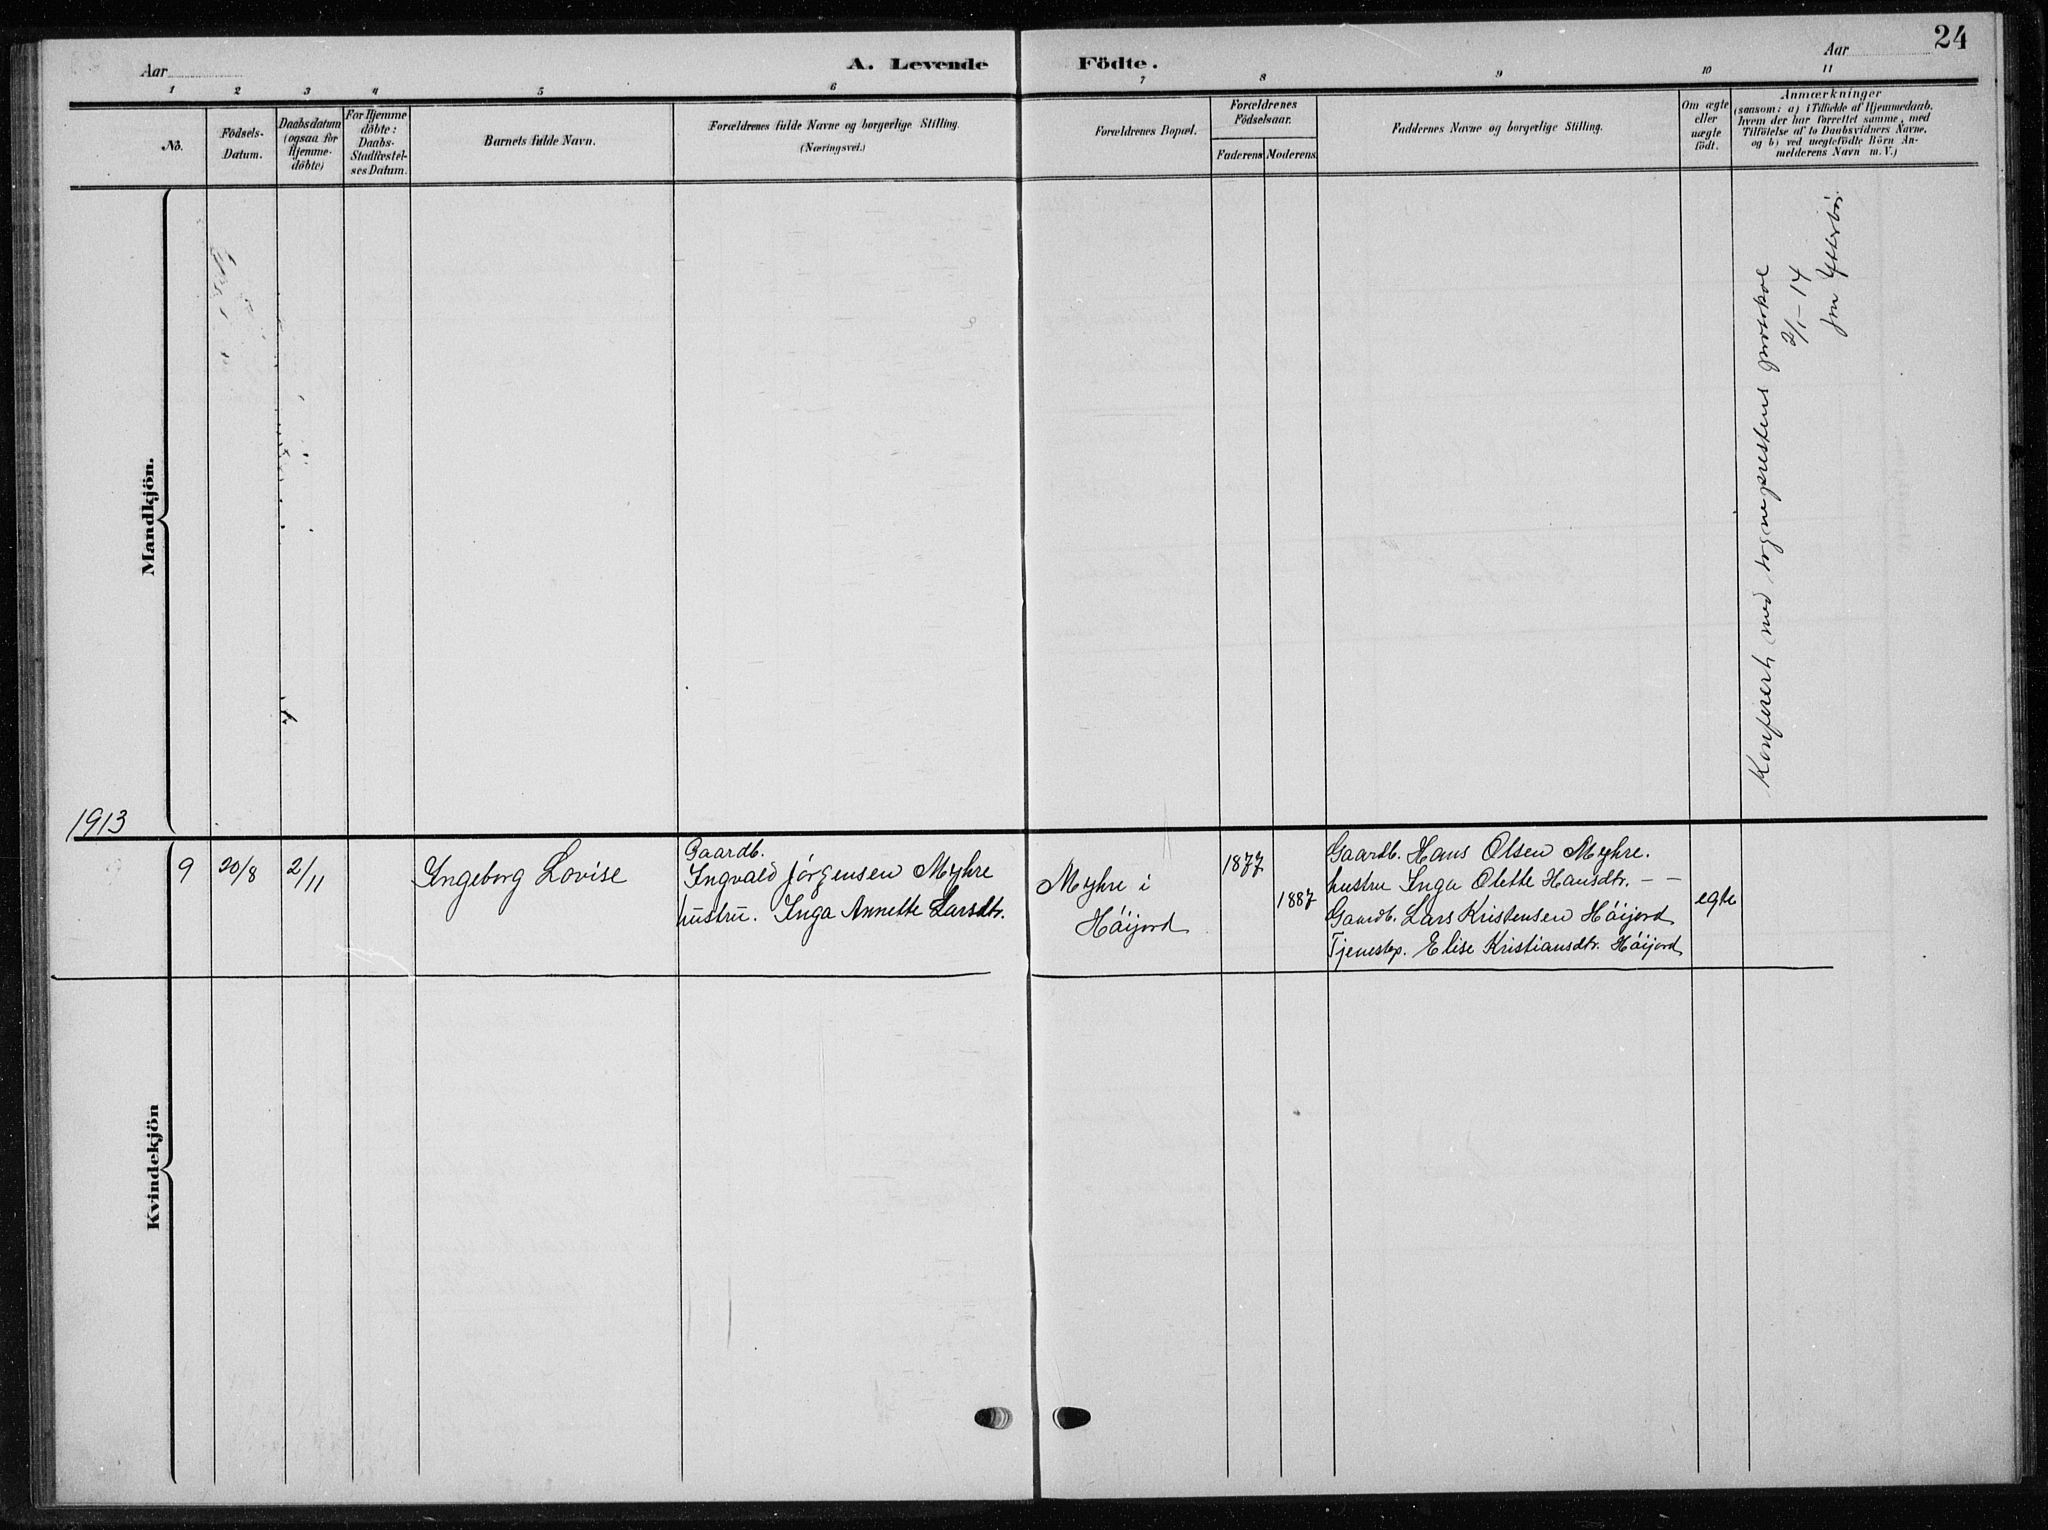 24
Aar
A. Levende Födte.
Aar
1 2 3 4 5 6 7 8 9 10 11
No.
Födsels-
Datum.
Daabsdatum
(ogsaa for
Hjemme-
döbte)
For Hjemme
döbte:
Daabs-
Stadfæstel-
ses Datum.
Barnets fulde Navn.
Forældrenes fulde Navne og borgerlige Stilling.
(Næringsvei.)
Forældrenes Bopæl.
Forældrenes
Födselsaar.
Faderens Moderens.
Faddernes Navne og borgerlige Stilling.
Om ægte
eller
uægte
födt.
Anmærkninger
(saasom: a) i Tilfælde af Hjemmedaab.
hvem der har forrettet samme, med
Tilföielse af to Daabsvidners Navne,
og b) ved uægtefödte Börn An-
melderens Navn m. V.)
Mandkjön.
Konferert med sogneprestens
2/1-14
1913
9
20/8
2/11
Ingeborg Lovise
Gaardb.
Ingvald Jörgensen Myhre
hustru. Inga Annette Larsdtr.
Myhre i
Höijord
1877
1887
Gaardb. Hans Olsen Myhre.
hustru Inga Olette Hansdtr. – –
Gaardb. Lars Kristensen Höijord
Tjenestep. Elise Kristiansdtr. Höijord
egte
Kvindekjön